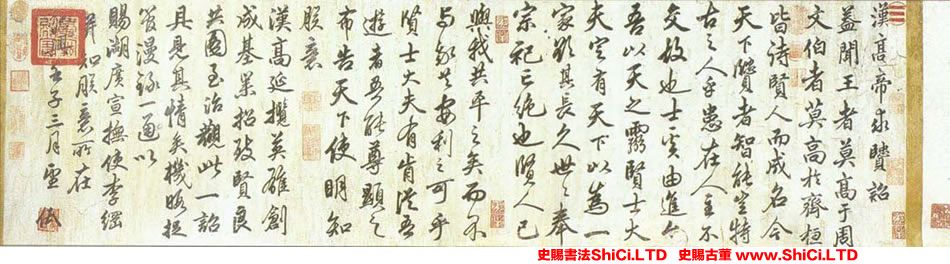 漢高帝求賢詔
蓋聞王者莫高于周
文伯者莫高於齊桓
皆待賢人而成名今
天下賢者智能豈特
古之人乎患在人主不
交故也士奚由進今
吾以天之靈賢士大
夫定有天下以為一
家欲其長久世〻奉
宗祀亡絕也賢人已
與我共平之矣而不
與吾共安利之可乎
賢士大夫有肯從吾
遊者吾能尊顯之
布告天下使明知
朕意
漢高延攬英雄創
成基業招致賢良
共圖至治觀此一詔
具見其情矣機暇
筆漫錄一通以
賜湖廣宣撫使李綱
知朕意所在
壬子三月望
史賜書法ShiCi.LTD 史賜古董 www.ShiCi.LTD